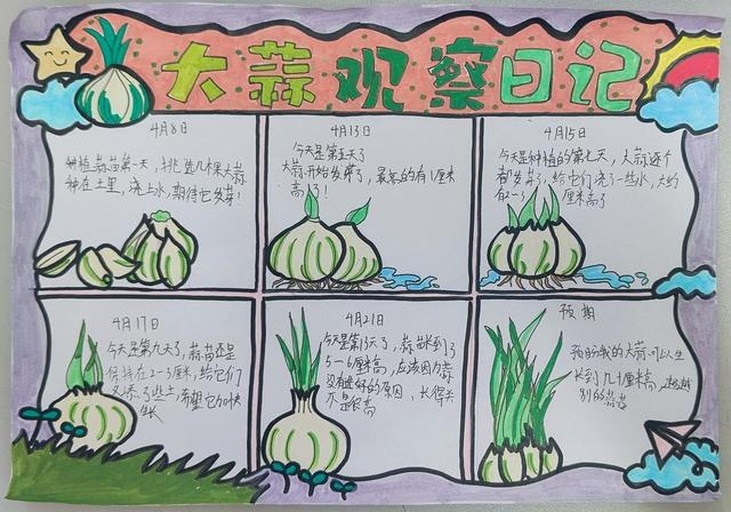 大蒜观察日记
4月8日
种植蒜苗第一天，挑选几棵大蒜
种在土里，浇上水，期待它发芽！
4月13日
今天是第五天了
大蒜开始发芽了，最高的有1厘米
高了！
4月15日
今天是种植的第七天，大蒜逐个
都发芽了，给它们浇了一些水，大约
有2～3厘米高了
4月17日
今天是第九天了，蒜苗还是
保持在2-3厘米，给它们
又添了些土，希望它加快
生长
4月21日
今天是第13天了，蒜苗长到了
5-6厘米高，应该因为蒜
没有选好的原因，长得
不是很高
预期
预的我的大蒜可以生
长到几十厘米高，超越
别的